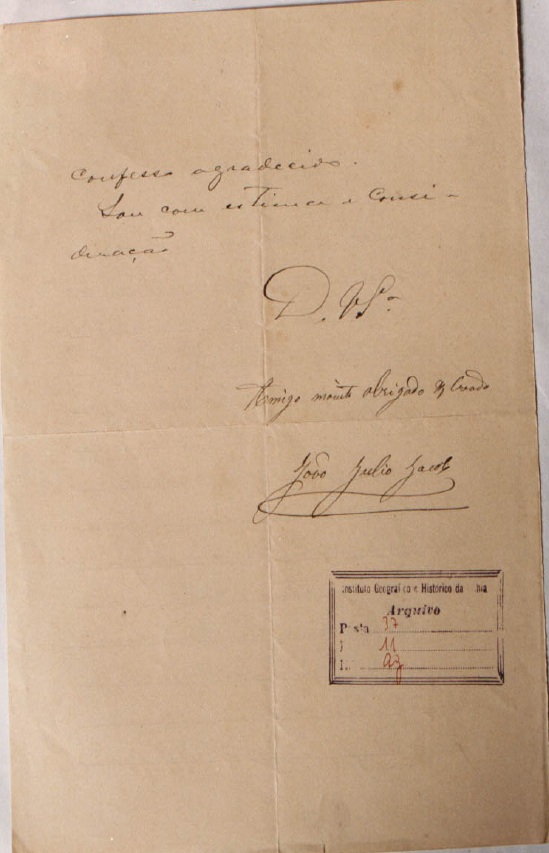 confesso agradecido.
Sou com estima e Consi-
deração
D. V. Sª.
Amigo muito obrigado & Criado
João Julio Jacob
Instituto Geografico e Histórico da hia
Arquivo
P sta 37
11